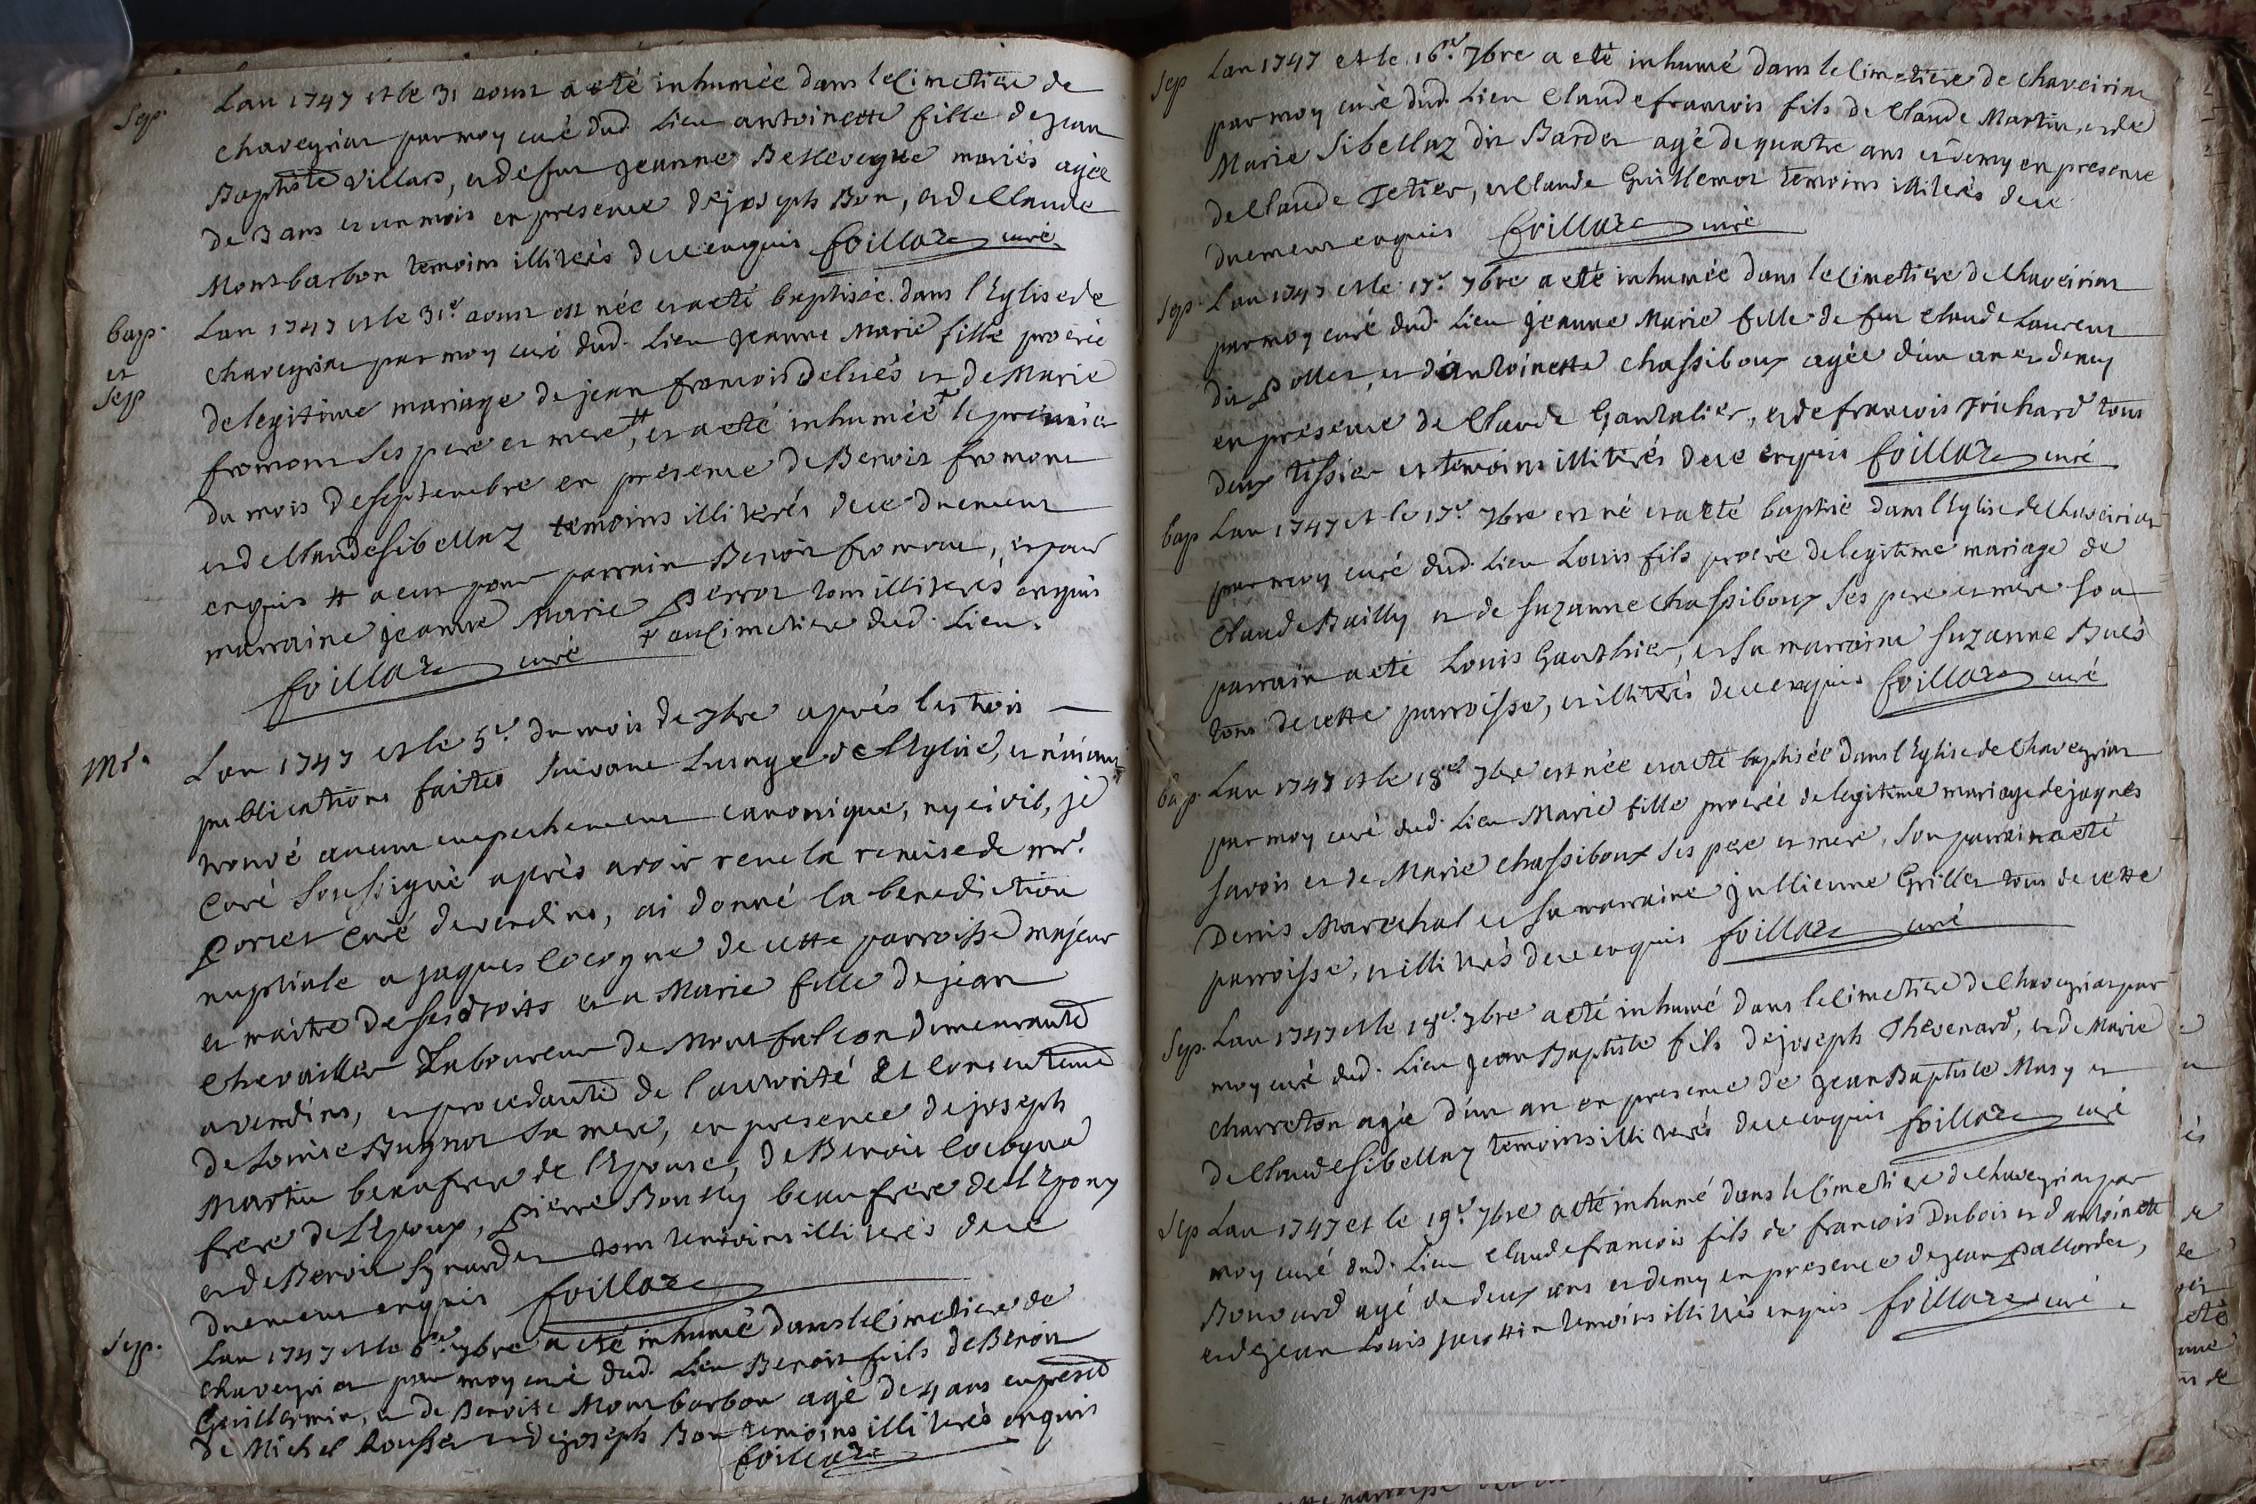 Sep. Lan 1747 et le 31 aoust a eté inhumée dans le Cimetiere de
chaveyriat par moy curé dud. Lieu antoinette fille de jean
Baptiste Villars, et de fut jeanne Bellevegue mariés agée
de 3 ans et un mois en presence de joseph Bon, et de Claude
Montbarbon temoins illiterés de ce enquis foillaz curé
bap. et sep Lan 1747 et le 31e aoust est née et a eté baptisée dans l'Eglise de
chaveyriat par moy curé dud. Lieu jeanne Marie fille procrée
de legitime mariage de jean francois Delriés et de Marie
fromont ses pere et mere, # et a eté inhumée + le premier
du mois de septembre en presence de Benoit fromont
et de Claude Sibellaz temoins illiterés de ce duement
enquis # a eut pour parrain Benoit fromont, et pour
marraine jeanne Marie Perrot tous illiterés enquis
foillaz curé + au Cimetiere dud. Lieu.
Mr. Lan 1747 et le 5e du mois de 7bre aprés les trois
publications faites suivant Lusage de l'Eglise, et n'aiant
trouvé aucun empechement canonique, ny civil, je
Curé soussigné aprés avoir recu la remise de mr.
Poncet Curé de vandins, ai donné la benediction
nuptiale a jaques Cocogne de cette parroisse majeur
et maitre de ses droits et a Marie fille de jean
Chevailler Laboureur de Montfalcon demeurante
a vandins, et procedante de l'authorité et consentement
de Louise Bugnot sa mere, en presence de joseph
Martin beaufrere de l'Epouse, de Benoit Cocogne
frere de L'Epoux, Pierre Bouilly beaufrere de l'Epoux
et de Benoit Synardet tous temoins illiterés de ce
duement enquis foillaz
Sep. Lan 1747 et le 6e 7bre a eté inhumé dans le Cimetiere de
chaveyriat par moy curé dud. Lieu Benoit fils de Benoit
Guillermin, et de Benoite Montbarbon agé de 4 ans en presence
de Michel Rousset et de joseph Bon temoins illiterés enquis
foillaz
Sep Lan 1747 et le 16e 7bre a eté inhumé dans le Cimetiere de chaveiriat
par moy curé dud. Lieu Claude francois fils de Claude Martin, et de
Marie Sibellaz dit Bardet agé de quatre ans et demy en presence
de Claude Tetier, et Claude Guillemot temoins illiterés de ce
duement enquis foillaz curé
Sep. Lan 1747 et le 17e 7bre a eté inhumée dans le Cimetiere de Chaveiriat
par moy curé dud. Lieu jeanne Marie fille de feu Claude Laurent
dit Pollet, et d'antoinette chassiboux agée d'un an et demy
en presence de Claude Gantalier, et de francois Trichard tous
deux tissier et temoins illiterés de ce enquis foillaz curé
bap Lan 1747 et le 17e 7bre est né et a eté baptisé dans l'Eglise de Chaveiriat
par moy curé dud. Lieu Louis fils procrée de legitime mariage de
Claude Bailly et de Suzanne chassiboux ses pere et mere son
parrain a eté Louis Gauthier, et sa marraine Suzanne Bués
tous de cette parroisse, et illiterés de ce enquis foillaz curé
bap. Lan 1747 et le 18e 7bre est née et a eté baptisée dans l'Eglise de Chaveyriat
par moy curé dud. Lieu Marie fille procrée de legitime mariage de jaques
Savoi et de Marie chassiboux ses pere et mere, Son parrain a eté
Denis Marechal et sa marraine jullienne Grillet tous de cette
parroisse, et illiterés de ce enquis foillaz curé
Sep. Lan 1747 et le 18e 7bre a eté inhumé dans le Cimetiere de Chaveyriat par
moy curé dud. Lieu Jean Baptiste fils de joseph Thevenard, et de Marie
charreton agée d'un an en presence de Jean Baptiste Mary et
de Claude Sibellaz temoins illiterés de ce enquis foillaz curé
Sep Lan 1747 et le 19e 7bre a eté inhumé dans le Cimetiere de Chaveyriat par
moy curé dud. Lieu Claude francois fils de francois Dubois et d'antoinette
Bonvard agé de deux ans et demy en presence de jean Pallordet,
et de jean Louis jacottin temoins illiterés enquis foillaz curé